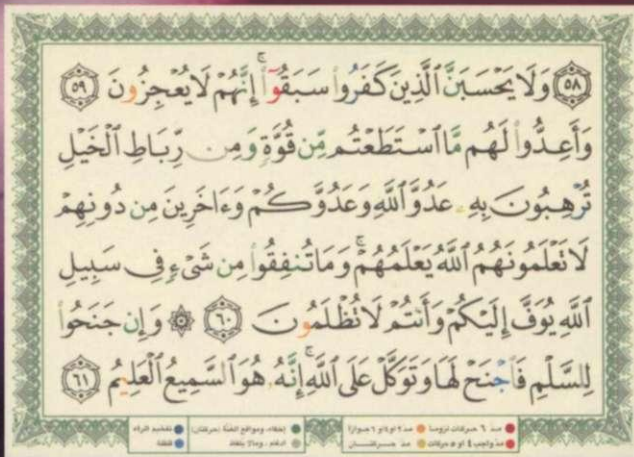 ﴿٥٨﴾ وَلَا يَحْسَبَنَّ ٱلَّذِينَ كَفَرُوا۟ سَبَقُوٓا۟ ۚ إِنَّهُمْ لَا يُعْجِزُونَ ﴿٥٩﴾
وَأَعِدُّوا۟ لَهُم مَّا ٱسْتَطَعْتُم مِّن قُوَّةٍ وَمِن رِّبَاطِ ٱلْخَيْلِ
تُرْهِبُونَ بِهِۦ عَدُوَّ ٱللَّهِ وَعَدُوَّكُمْ وَءَاخَرِينَ مِن دُونِهِمْ
لَا تَعْلَمُونَهُمُ ٱللَّهُ يَعْلَمُهُمْ ۚ وَمَا تُنفِقُوا۟ مِن شَىْءٍ فِى سَبِيلِ
ٱللَّهِ يُوَفَّ إِلَيْكُمْ وَأَنتُمْ لَا تُظْلَمُونَ ﴿٦٠﴾ ۞ وَإِن جَنَحُوا۟
لِلسَّلْمِ فَٱجْنَحْ لَهَا وَتَوَكَّلْ عَلَى ٱللَّهِ ۚ إِنَّهُۥ هُوَ ٱلسَّمِيعُ ٱلْعَلِيمُ ﴿٦١﴾
مد ٦ حركات لزوماً مد ٢ أو ٤ أو ٦ جوازاً إخفاء، ومواقع الغنّة (حركتان) تفخيم الراء
مد واجب ٤ أو ٥ حركات مد حركتان إدغام، وما لا يلفظ قلقلة